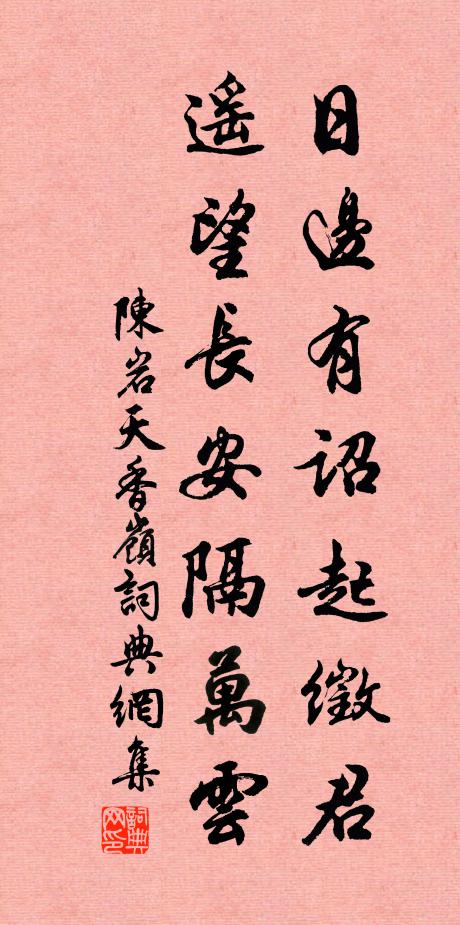 日邊有詔起徵君
遙望長安隔萬雲
陳岩天香嶺詞典網集
詞典网印